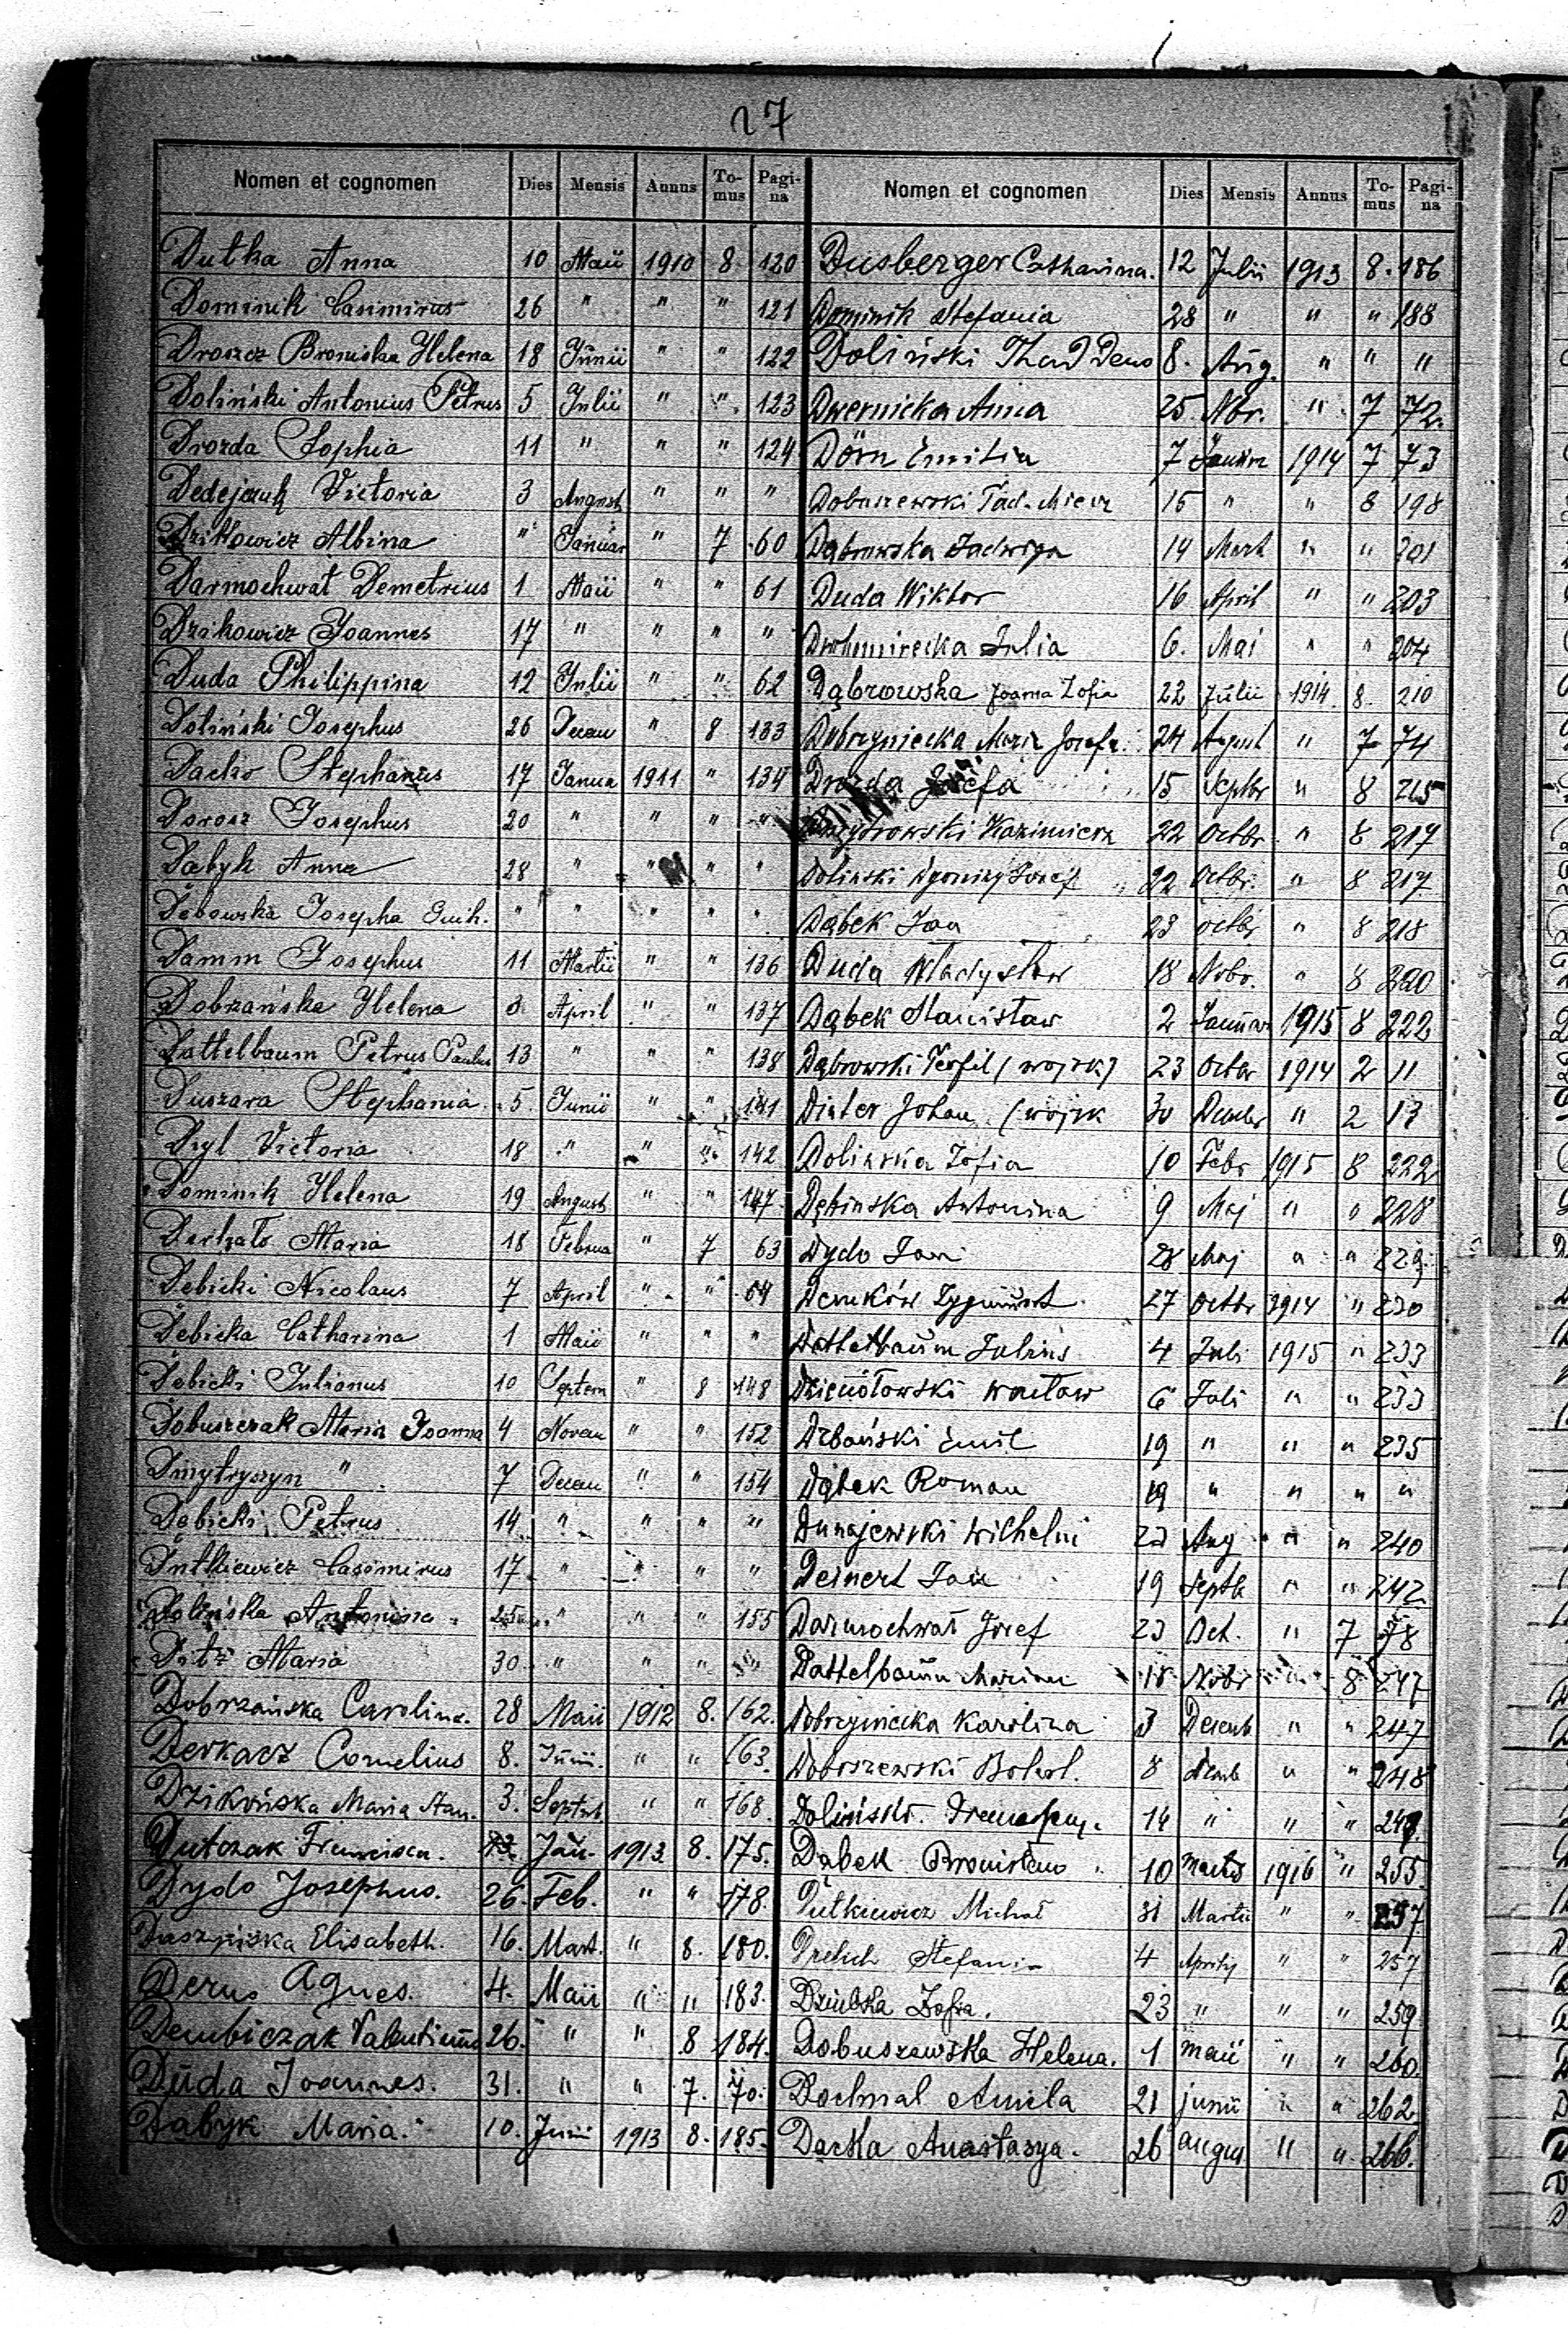 27
Nomen et cognomen Dies Mensis Annus To-mus Pagi-na
Dutka Anna 10 Maii 1910 8 120
Dominik Casimirus 26 " " " 121
Droszcz Bronisłea Helena 18 Junii " " 122
Doliński Antonius Petrus 5 Julii " " 123
Drozda Sophia 11 " " " 124
Victoria 3 August " " "
Albina " Januar " 7 60
Darmochwat Demetrius 1 Maii " " 61
Dzikowicz Joannes 17 " " " "
Duda Philippina 12 Julii " " 62
Doliński Josephus 26 Decem " 8 133
Dacko Stephanus 17 Janua 1911 " 134
Dorosz Josephus 20 " " " "
Dabyk Anna 28 " " " "
Dębowska Josepha " " " " "
Damm Josephus 11 Martii " " 136
Dobrzańska Helena 3 April " " 137
Dattelbaum Petrus Paulus 13 " " " 138
Duszara Stephania 5 Junii " " 141
Dryl Victoria 18 " " " 142
Dominik Helena 19 August " " 147
Maria 18 Februa " 7 63
Dębicki Nicolaus 7 April " " 64
Dębicka Catharina 1 Maii " " "
Dębicki Julianus 10 Septem " 8 148
Dobuszczak Maria Joanna 4 Novem " " 152
Dmytryszyn " 7 Decem " " 154
Dębicki Petrus 14 " " " "
Dutkiewicz Casimirus 17 " " " "
Dolińska Antonina 25 " " " 155
Maria 30 " " " "
Dobrzańska Carolina. 28 Maii 1912 8. 162.
Derkacz Cornelius 8. Junii. " " 163.
Dzikońska Maria Stan. 3. Septrb. " " 168.
Dutczak Francisca. Jan. 1913 8. 175.
Dydo Josephus. 26. Feb. " " 178.
Elisabeth. 16. Mart. " 8. 180.
Agnes. 4. Maii " " 183.
Dembiczak Valentinus 26. " " 8 184.
Duda Joannes. 31. " " 7. 70.
Dabyk Maria. 10. Junii 1913 8. 185.
Nomen et cognomen Dies Mensis Annus To-mus Pagi-na
Dusberger Catharina. 12 Julii 1913 8. 186
Dominik Stefania 28 " " " 188
Doliński Thaddeus 8. Aug. " " "
Dwernicka Anna 25. Nbr. " 7 72.
Dörn Emilia 7 Januar 1914 7 73
Dobuszewski Tad. Miecz 15 " " 8 198
Dąbrowska Jadwiga 14 Mart " " 201
Duda Wiktor 16 April " " 203
Drohomirecka Julia 6. Mai " " 204
Dąbrowska Joanna Zofia 22 Julii 1914. 8. 210
Dobrzyniecka Maria Josefa. 24 August " 7 74
Drozda Józefa 15 Septbr " 8 215
Kazimierz 22 Octbr " 8 217
Dolinski Dyonizy Josef 22 Octbr. " 8 217
Dąbek Jan 23 octbr " 8 218
Duda Władysław 18 Nobr. " 8 220
Dąbek Stanisław 2 Januar 1915 8 222
Dąbrowski Teofil (wojsk) 23 Octbr 1914 2 11
Dinter Johan (wojsk 30 Decembr " 2 13
Dolinska Zofia 10 Febr 1915 8 222
Dębinska Antonina 9 Maj " " 228
Dydo Jan 28 Maj " " 229
Zygmunt 27 Octbr 1914 " 230
Dattelbaum Julius 4 Juli 1915 " 233
Dzieciołowski Wacław 6 Juli " " 233
Drbański Emil 19 " " " 235
Dąbek Roman 19 " " " "
Dunajewski Wilhelm 23 Aug " " 240
Deinert Jan 19 Septb " " 242
Darmochwał Josef 23 Oct. " 7 78
Dattelbaum Marian 18 Nobr " 8 247
Dobrzyniecka Karolina 3 Decemb " " 247
Doboszewski Bohol. 8 decemb " " 248
14 " " " 249.
Dąbek Bronisław 10 Martii 1916 " 255.
Dutkiewicz Michał 31 Martii " " 257
Stefania 4 Aprilij " " 257
Dziubka Zofia. 23 " " " 259
Dobuszewska Helena. 1 maii " " 260.
Dochnal Amila 21 junii " " 262
Dacka Anastazya. 26 augus " " 266.